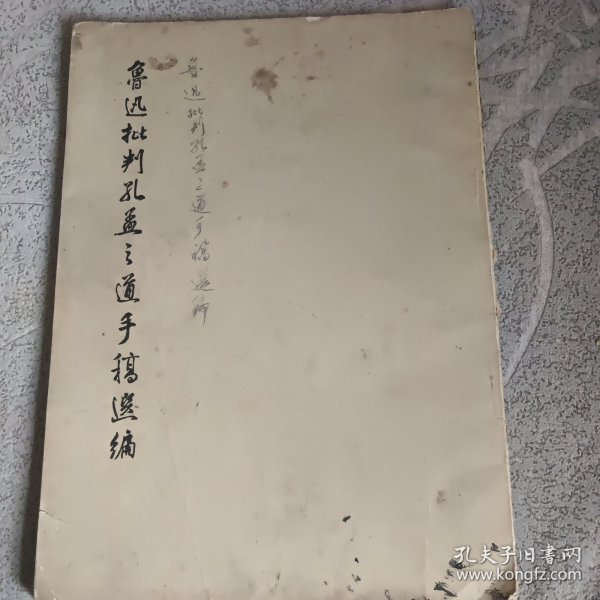 魯迅批判孔孟之道手稿选编
魯迅批判孔孟之道手稿选编
孔夫子旧书网
www.kongfz.com